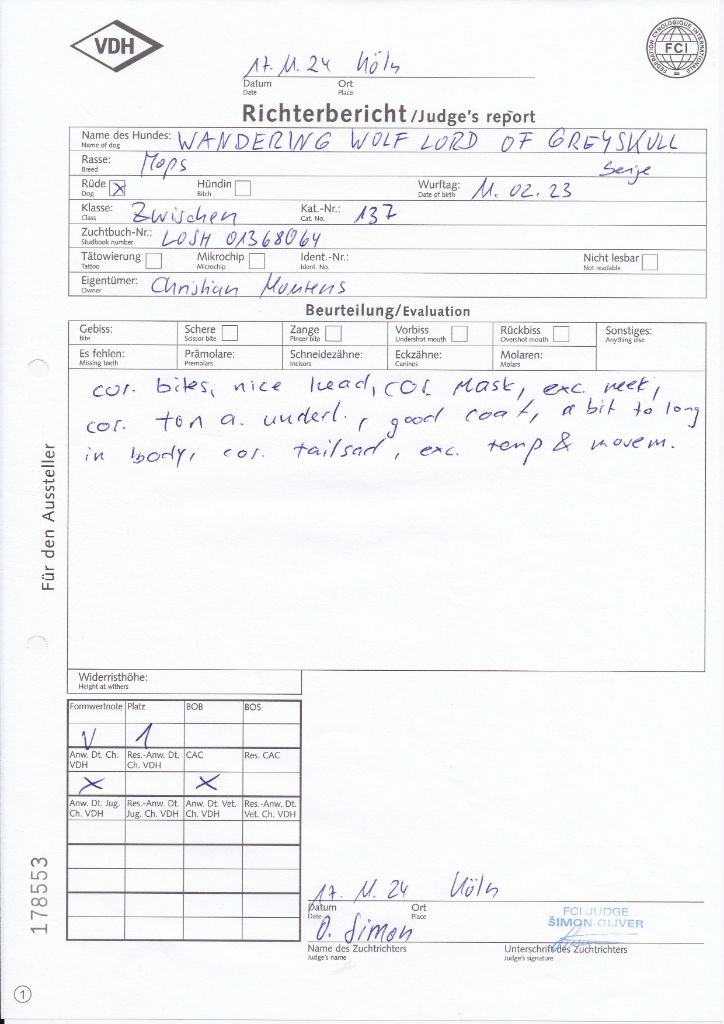 VDH
FEDERATION CYNOLOGIQUE INTERNATIONALE
FCI
17.11.24 Köln
Datum Ort
Date Place
Richterbericht /Judge's report
Name des Hundes: WANDERING WOLF LORD OF GREYSKULL
Name of dog
Rasse: Mops beige
Breed
Rüde X Hündin Wurftag: 11.02.23
Dog Bitch Date of birth
Klasse: Zwischen Kat.-Nr.: 137
Class Cat. No.
Zuchtbuch-Nr.: LOSH 01368064
Studbook number
Tätowierung Mikrochip Ident.-Nr.: Nicht lesbar
Tattoo Microchip Ident. No. Not readable
Eigentümer: Christian
Owner
Beurteilung/Evaluation
Gebiss: Schere Zange Vorbiss Rückbiss Sonstiges:
Bite Scissor bite Pincer bite Undershot mouth Overshot mouth Anything else
Es fehlen: Prämolare: Schneidezähne: Eckzähne: Molaren:
Missing teeth Premolars Incisors Canines Molars
cor. bites, nice head, cor mask, exc. neck,
cor. top a. underl., good coat, a bit to long
in body, cor. , exc. temp & movem.
Für den Aussteller
Widerristhöhe:
Height at withers
Formwertnote Platz BOB BOS
V 1
Anw. Dt. Ch. VDH Res.-Anw. Dt. Ch. VDH CAC Res. CAC
X X
Anw. Dt. Jug. Ch. VDH Res.-Anw. Dt. Jug. Ch. VDH Anw. Dt. Vet. Ch. VDH Res.-Anw. Dt. Vet. Ch. VDH
178553
17.11.24 Köln
Datum Ort
Date Place
FCI JUDGE
ŠIMON OLIVER
O. Simon
Name des Zuchtrichters Unterschrift des Zuchtrichters
Judge's name Judge's signature
1